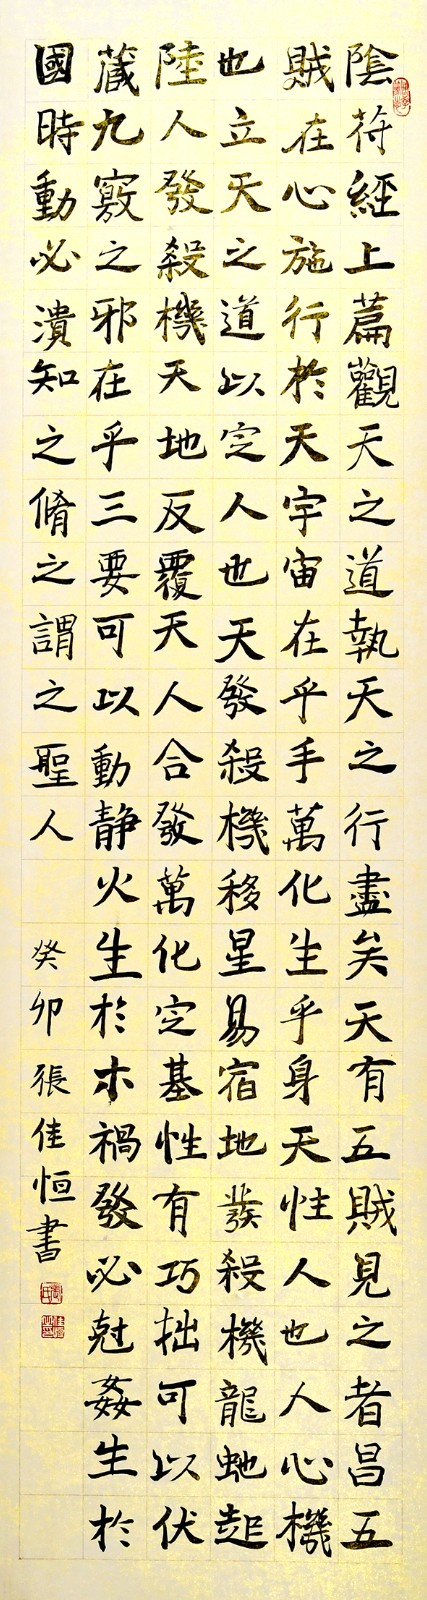 陰符經上篇觀天之道執天之行盡矣天有五賊見之者昌五
賊在心施行於天宇宙在乎手萬化生乎身天性人也人心機
也立天之道以定人也天發殺機移星易宿地發殺機龍虵起
陸人發殺機天地反覆天人合發萬化定基性有巧拙可以伏
藏九竅之邪在乎三要可以動静火生於木禍發必尅姦生於
國時動必潰知之脩之謂之聖人
癸卯張佳恒書